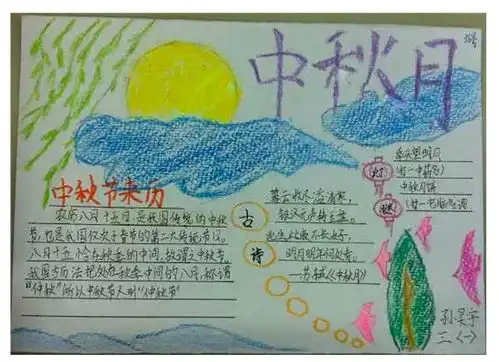 中秋月
中秋节来历
农历八月十五日是我国传统的中秋
节，也是我国仅次于春节的第二大传统节日。
八月十五恰在秋季的中间，故谓之中秋节。
我国古历法把处在秋季中间的八月，称谓
"仲秋"所以中秋节又叫"仲秋节"
古
诗
暮云收尽溢清寒，
银汉无声转玉盘。
此生此夜不长好，
明月明年何处看。
—苏轼《中秋月》
灯
谜
举头望明月
中秋月饼
孙昊宇
三〈一〉